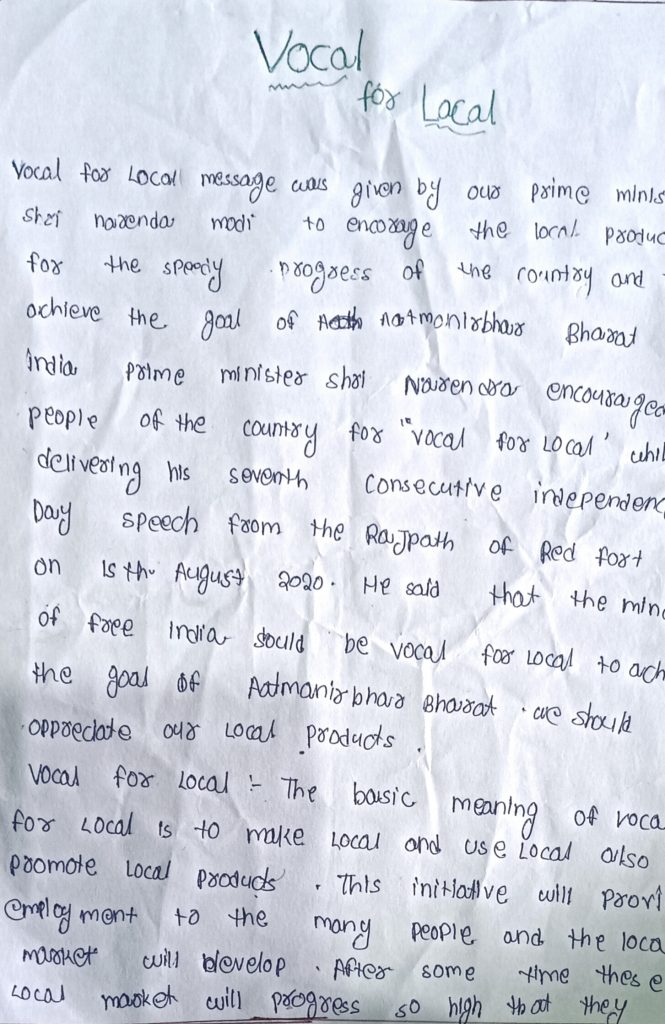 Vocal
for Local
Vocal for Local message was given by our prime minis
shri narenda modi to encorage the local produc
for the speedy progress of the country and
achieve the goal of Aatmanirbhar Bharat
India prime minister shri Narendra encouraged
people of the country for "vocal for Local' whil
delivering his seventh consecutive independenc
Day speech from the Rajpath of Red fort
on 15th August 2020. He said that the mind
of free India sould be vocal for local to ach
the goal of Aatmanirbhar Bharat. we should
appreciate our Local products.
Vocal for Local :- The basic meaning of voca
for Local is to make Local and use Local also
promote Local products. This initiative will provi
employment to the many people and the loca
market will develop. After some time these
Local market will progress so high that they